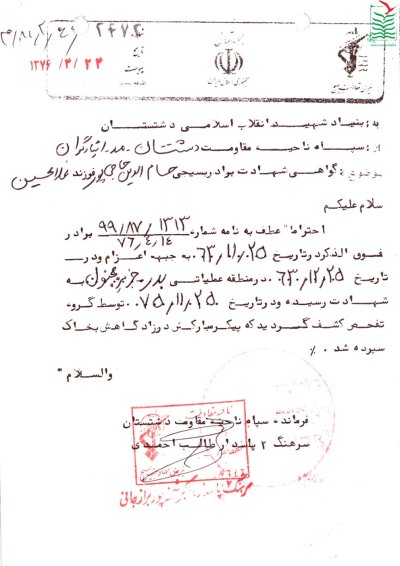 ۲۴۷۲
شماره
تاریخ ۱۳۷۶/۴/۲۴
پیوست
جمهوری اسلامی ایران
به: بنیاد شهید انقلاب اسلامی دشتستان
از: سپاه ناحیه مقاومت دشتستان - مد - ایثارگران
موضوع: گواهی شهادت برادر بسیجی حسام الدین حاجی پور فرزند غلامحسین
سلام علیکم
احتراما" عطف به نامه شماره ۹۹/۸۷/۱۳۱۳ برادر
۷۶/۴/۱۴
فوق الذکر در تاریخ ۰۶۳/۱۱/۰۲۵ به جبهه اعزام و در
تاریخ ۰۶۳/۱۲/۰۲۵ در منطقه عملیاتی بدر - جزیره مجنون به
شهادت رسیده و در تاریخ ۰۷۵/۱۱/۰۲۵ توسط گروه
تفحص کشف گردید که پیکر مبارکش در زادگاهش بخاک
سپرده شد ۰٪
والسلام
فرمانده سپاه ناحیه مقاومت دشتستان
سرهنگ ۲ پاسدار طالب احمدی